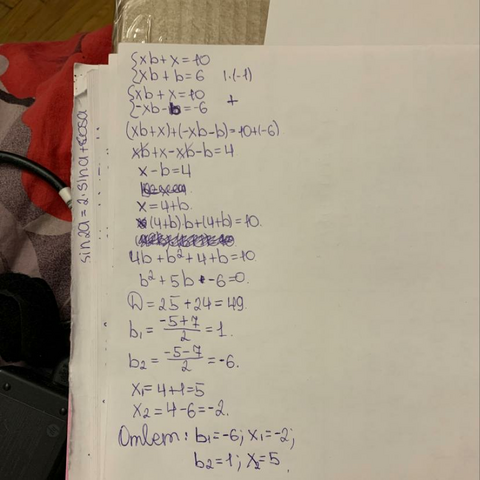 {xb+x=10
{xb+b=6 |·(-1)
{xb+x=10
{-xb-b=-6 +
(xb+x)+(-xb-b)=10+(-6)
xb+x-xb-b=4
x-b=4
x=4+b.
(4+b)·b+(4+b)=10.
4b+b²+4+b=10
b²+5b-6=0.
D=25+24=49.
b₁=\frac{-5+7}{2}=1.
b₂=\frac{-5-7}{2}=-6.
x₁=4+1=5
x₂=4-6=-2.
Ответ: b₁=-6; x₁=-2;
b₂=1; x₂=5.
sin2a=2·sina+cosa